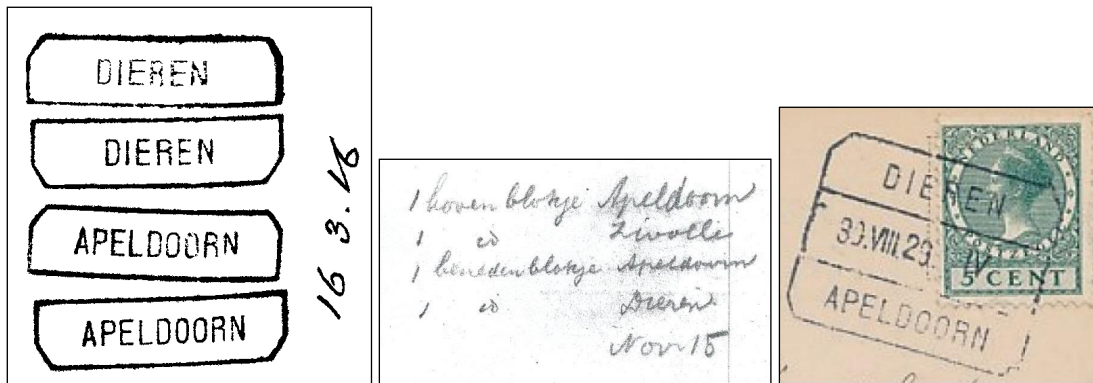 DIEREN
DIEREN
APELDOORN
APELDOORN
16 3.16
1 bovenblokje Apeldoorn
1 id Zwolle
1 benedenblokje Apeldoorn
1 id Dieren
Nov 15
NEDERLAND
DIEREN
30.VIII.29. IV
5 CENT
APELDOORN